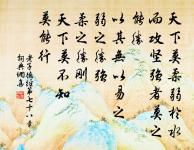 天下莫柔弱於水
而攻堅強者莫之
能勝
以其無以易之
弱之勝強
柔之勝剛
天下莫不知
莫能行
老子道德經第七十八章
詞典網集